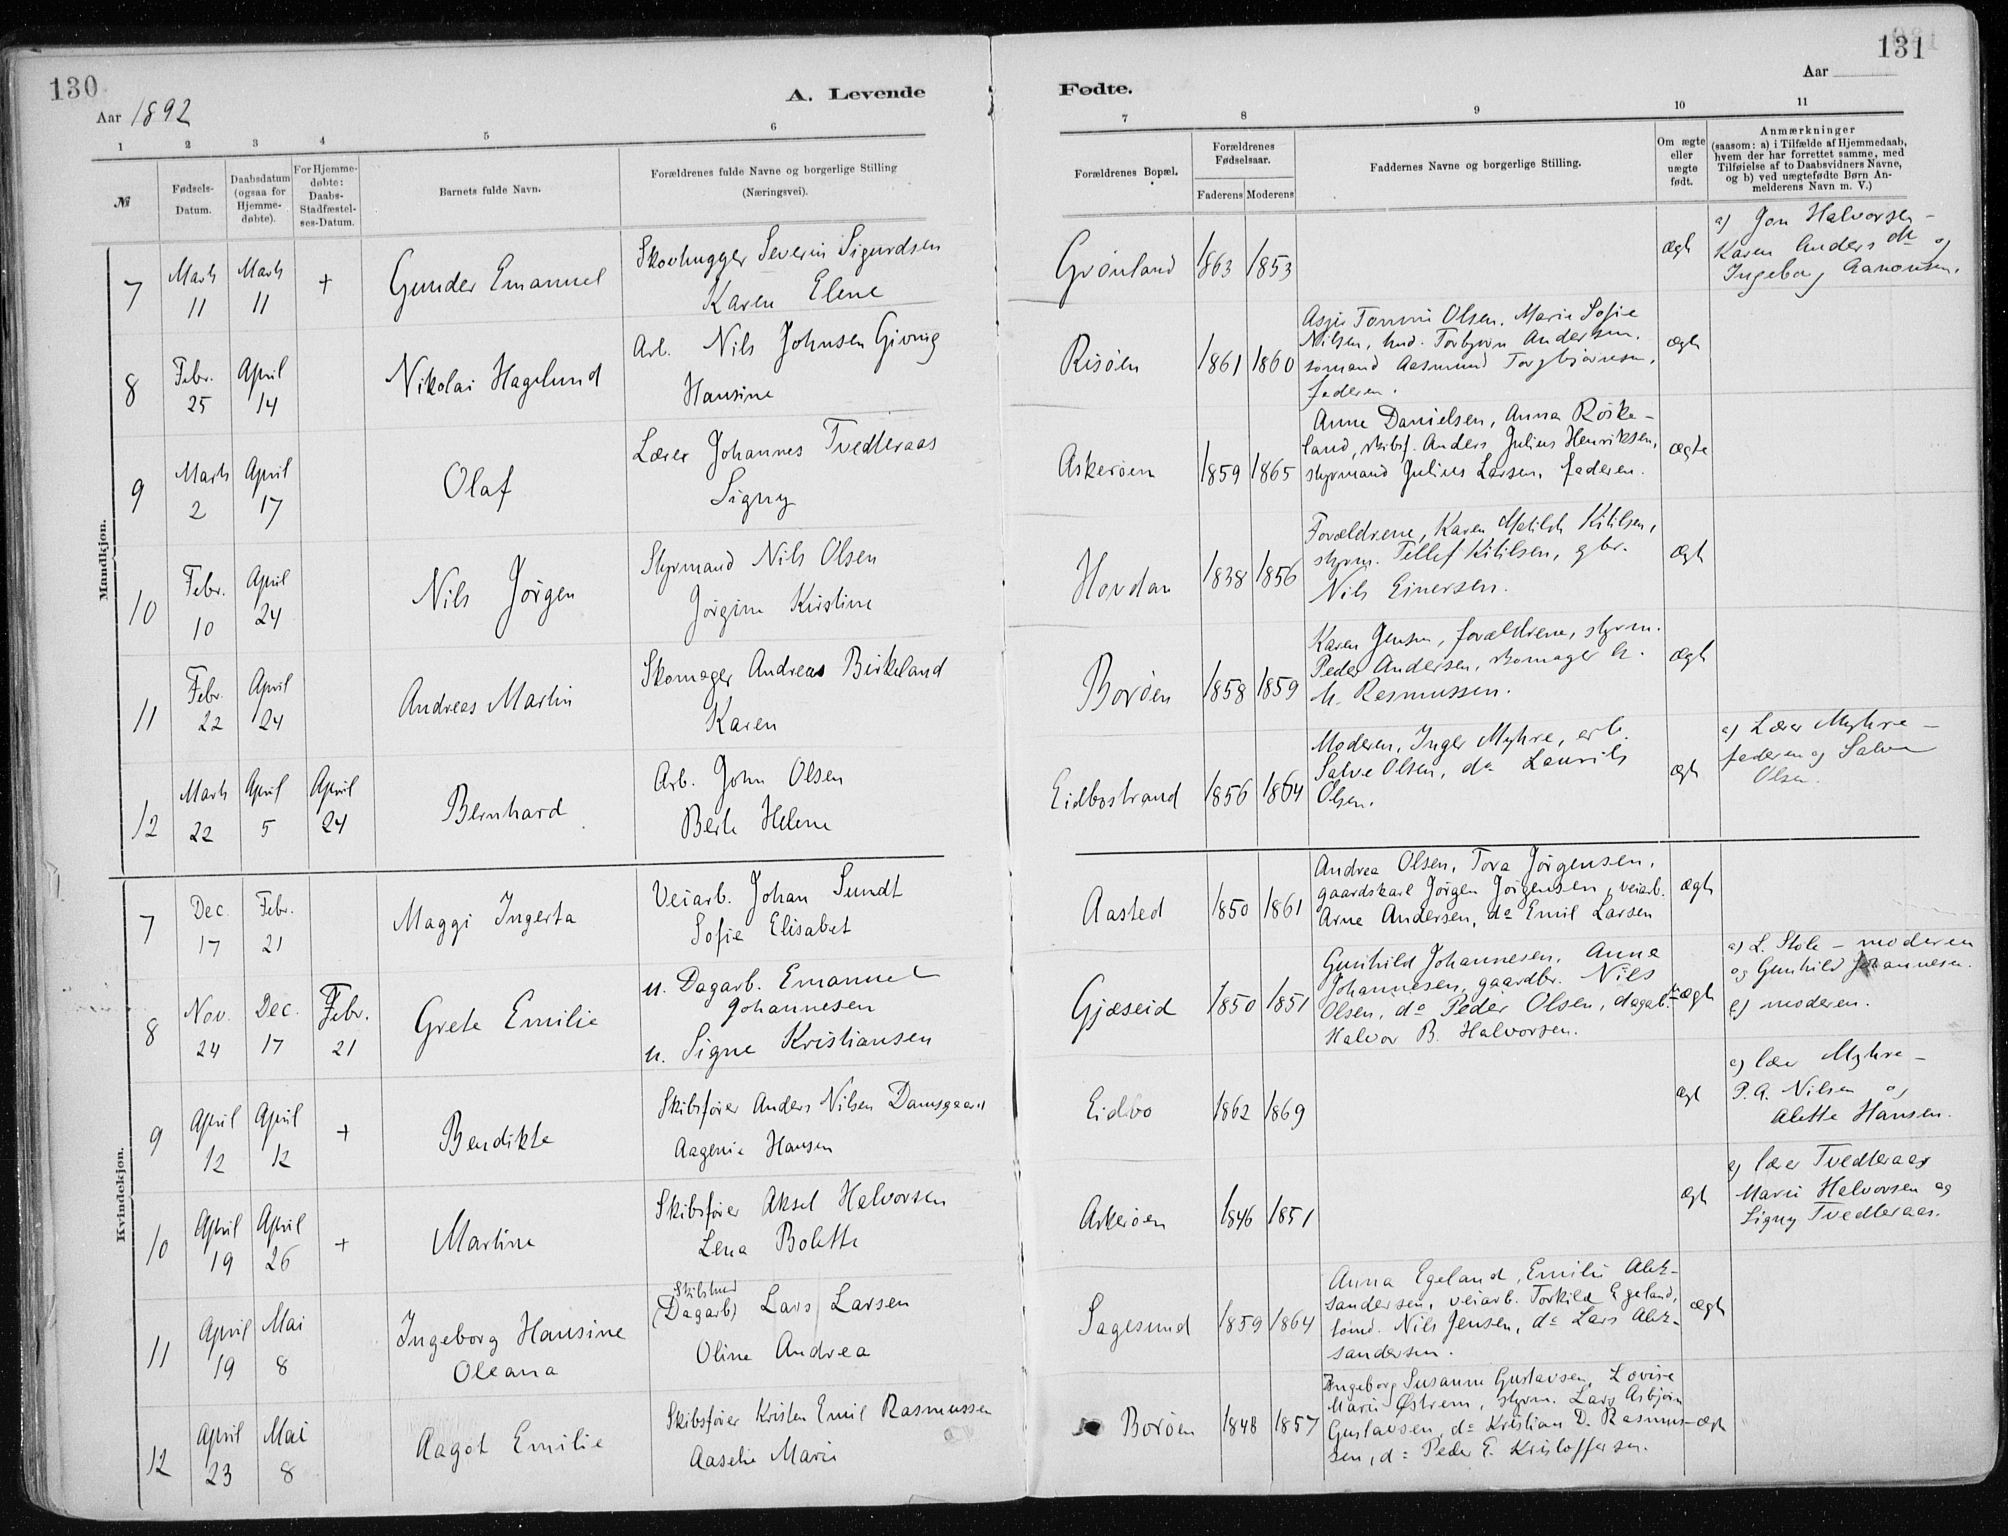 130
Aar 1892
A. Levende
1 2 3 4 5 6
№
Fødsels-Datum.
Daabsdatum (ogsaa for Hjemme-døbte).
For Hjemme-døbte: Daabs-Stadfæstel-ses-Datum.
Barnets fulde Navn.
Forældrenes fulde Navne og borgerlige Stilling
(Næringsvei).
Mandkjøn.
7 Marts 11 Marts 11 + Gunder Emanuel
Skovhugger Severin Sigurdsen
Karen Elene
8 Febr. 25 April 14 Nikolai Hagelund
Arb. Nils Johnsen Giving
Hansine
9 Marts 2 April 17 Olaf
Lærer Johannes Tvedteraas
Signy
10 Febr. 10 April 24 Nils Jørgen
Styrmand Nils Olsen
Jørgine Kristine
11 Febr. 22 April 24 Andreas Martin
Skomager Andreas Birkeland
Karen
12 Marts 22 April 5 April 24 Bernhard
Arb. John Olsen
Berte Helene
Kvindekjøn.
7 Dec. 17 Febr. 21 Maggi Ingerta
Veiarb. Johan Sundt
Sofie Elisabet
8 Nov. 24 Dec. 17 Febr. 21 Grete Emilie
u. Dagarb. Emanuel
Johannesen
u. Signe Kristiansen
9 April 12 April 12 + Bendikte
Skibsfører Anders Nilsen Damsgaard
Aagenie Hansen
10 April 19 April 26 + Martine
Skibsfører Aksel Halvorsen
Lena Bolette
11 April 19 Mai 8 Ingeborg Hansine
Oleana
(Dagarb) Lars Larsen
Oline Andrea
12 April 23 Mai 8 Aagot Emilie
Skibsfører Kristen Emil Rasmussen
Aaselie Marie
131
Aar
Fødte.
7 8 9 10 11
Forældrenes Bopæl.
Forældrenes Fødselsaar.
Faderens Moderens
Faddernes Navne og borgerlige Stilling.
Om ægte eller uægte født.
Anmærkninger
(saasom: a) i Tilfælde af Hjemmedaab,
hvem der har forrettet samme, med
Tilføielse af to Daabsvidners Navne,
og b) ved uægtefødte Børn An-
melderens Navn m. V.)
Grönland 1863 1853 ægt
a) Jon Halvorsen -
Karen Andersdtr og
Ingeborg Aanonsen.
Risöen 1861 1860
Tomine Olsen. Marie Sofie
Nilsen, Torbjørn Andersen.
sömand Aasmund Torgbjørnsen,
faderen.
ægt
Askeröen 1859 1865
Anne Danielsen, Anna Röike-
land, skibsf. Anders Julius Henriksen,
styrmand Julius Larsen, faderen.
ægte
Hovdan 1838 1856
Forældrene, Karen Matilde Kitilsen,
styrm. Tellef Kitilsen, gbr.
Nils Einersen.
ægt
Boröen 1858 1859
Karen Jensen, forældrene, styrm.
Peder Andersen, skomager A.
M. Rasmussen.
ægt
Eidbostrand 1856 1864
Moderen, Inger Myhre, arb.
Salve Olsen, do Laurits
Olsen.
ægt
a) Lærer Myhre -
faderen og Salve
Olsen.
Aasted 1850 1861
Andrea Olsen, Tora Jörgensen,
gaardskarl Jörgen Jörgensen, veiarb.
Arne Andersen, do Emil Larsen
ægt
Gjæseid 1850 1851
Gunhild Johannesen, Anne
Johannesen, gaardbr. Nils
Olsen, do Peder Olsen, dagarb.
Halvor B. Halvorsen.
uægt
a) L. Stole - moderen
og Gunhild Johannesen.
b) moderen.
Eidbo 1862 1869 ægt
a) lær Myhre -
P. A. Nilsen og
Alette Hansen.
Askeröen 1846 1851 ægt
a) lærer Tvedteraas
Marie Halvorsen og
Signy Tvedteraas.
Sagesund 1859 1864
Anna Egeland, Emilie Alek-
sandersen, veiarb. Torkild Egeland,
tömd. Nils Jensen, do Lars Alek-
sandersen.
ægt
Boröen 1848 1857
Ingeborg Susanne Gustavsen, Lovise
Marie Østrem, styrm. Lars Asbjørn
Gustavsen, do Kristian D. Rasmus-
sen, do Peder E. Kristoffersen.
ægt